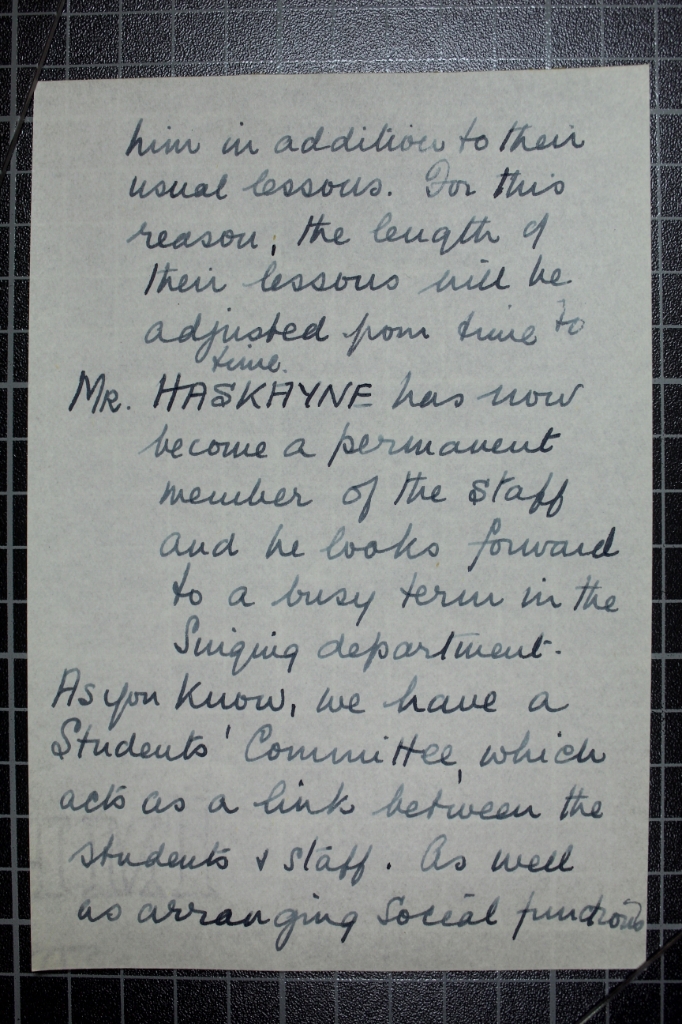 him in addition to their
usual lessons. For this
reason, the length of
their lessons will be
adjusted from time to
time.
MR. HASKAYNE has now
become a permanent
member of the Staff
and he looks forward
to a busy term in the
Singing department.
As you know, we have a
Students' Committee, which
acts as a link between the
students & staff. As well
as arranging Social functions